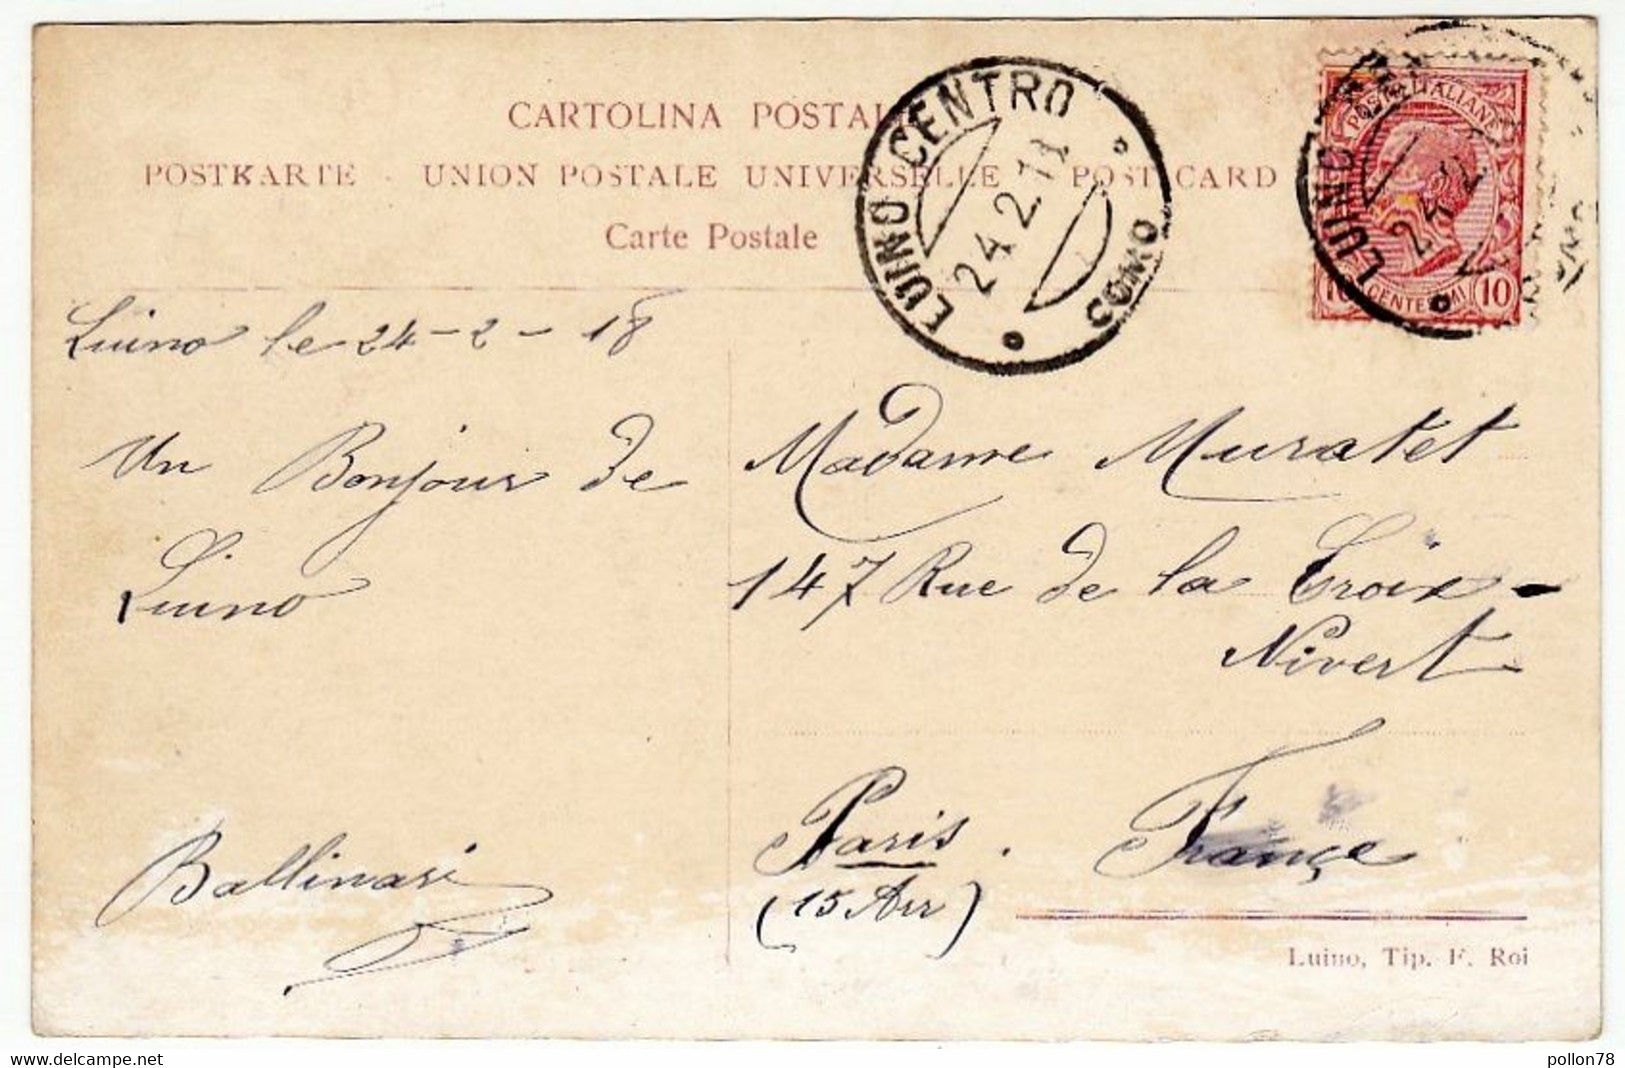 CARTOLINA POSTALE
POSTKARTE - UNION POSTALE UNIVERSELLE - POST CARD
Carte Postale
LUINO CENTRO
24.2.11
COMO
POSTE ITALIANE
10 CENTESIMI 10
LUINO
24.2
Luino le 24-2-18
Un Bonjour de
Luino
Ballinari
Madame Muratet
147 Rue de la Croïx-
Nivert
Paris. Françe
(15 Arr)
Luino, Tip. F. Roi
pollon78